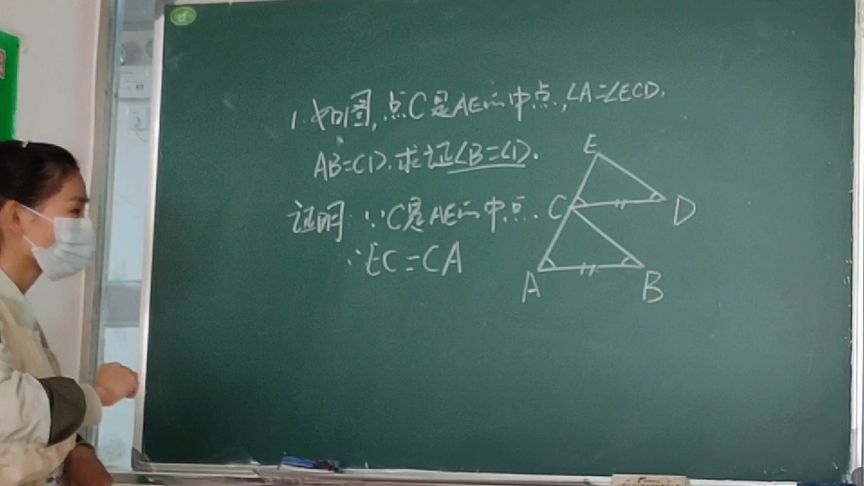 1. 如图,点C是AE的中点,∠A=∠ECD.
AB=CD.求证∠B=∠D.
证明:∵C是AE的中点.
∵EC=CA
E
C
D
A
B